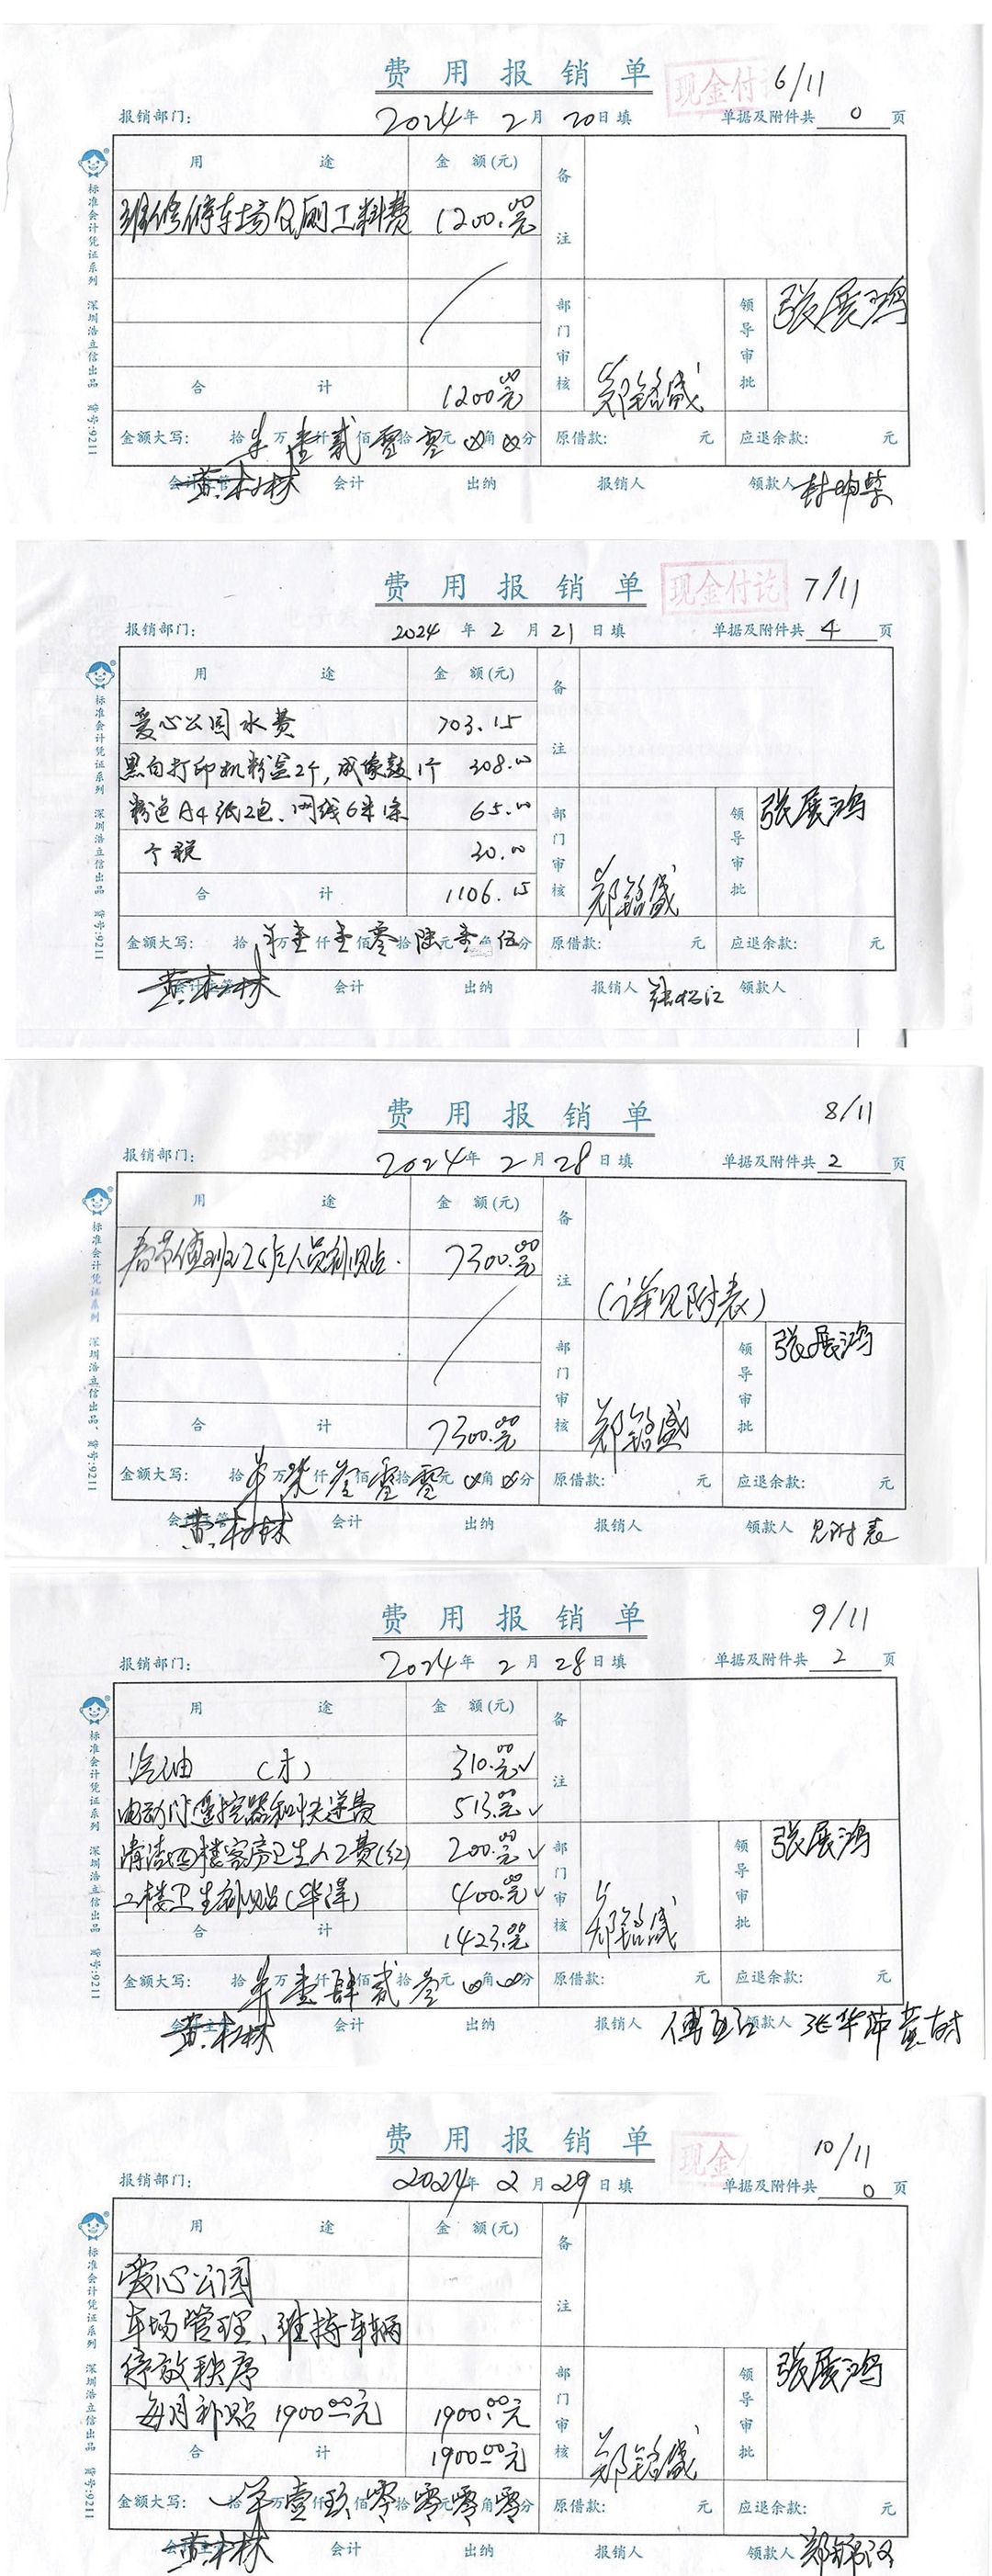 费用报销单
现金付讫
6/11
报销部门:
2024年 2月 20日填
单据及附件共 0 页
用途 金额(元) 备注
维修停车场公厕工料费 1200.00元
合计 1200.00元
部门审核 郑铭盛
领导审批 张展鸿
金额大写: 拾 万壹仟贰佰零拾零元 角 分
原借款: 元
应退余款: 元
会计主管 会计 出纳 报销人 领款人
标准会计凭证系列 深圳浩立信出品 货号:9211
费用报销单
现金付讫
7/11
报销部门:
2024年 2月 21日填
单据及附件共 4 页
用途 金额(元) 备注
爱心公园水费 703.15
黑白打印机粉盒2个,成像鼓1个 308.00
粉色A4纸2包、网线6米1条 65.00
个税 30.00
合计 1106.15
部门审核 郑铭盛
领导审批 张展鸿
金额大写: 拾 万壹仟壹佰零拾陆元壹角伍分
原借款: 元
应退余款: 元
会计主管 会计 出纳 报销人 领款人
标准会计凭证系列 深圳浩立信出品 货号:9211
费用报销单
8/11
报销部门:
2024年 2月 28日填
单据及附件共 2 页
用途 金额(元) 备注
春节值班工作人员补贴. 7300.00元
(详见附表)
合计 7300.00元
部门审核 郑铭盛
领导审批 张展鸿
金额大写: 拾 万柒仟叁佰零拾零元 角 分
原借款: 元
应退余款: 元
会计主管 会计 出纳 报销人 领款人 见附表
标准会计凭证系列 深圳浩立信出品 货号:9211
费用报销单
9/11
报销部门:
2024年 2月 28日填
单据及附件共 2 页
用途 金额(元) 备注
汽油 (木) 310.00元✓
电动门遥控器和快递费 513.00元✓
清洁四楼客房卫生人工费(红) 200.00元✓
二楼卫生补贴(华萍) 400.00元✓
合计 1423.00元
部门审核 郑铭盛
领导审批 张展鸿
金额大写: 拾 万壹仟肆佰贰拾叁元 角 分
原借款: 元
应退余款: 元
会计主管 会计 出纳 报销人 领款人 张华萍
标准会计凭证系列 深圳浩立信出品 货号:9211
费用报销单
现金
10/11
报销部门:
2024年 2月 29日填
单据及附件共 0 页
用途 金额(元) 备注
爱心公园
车场管理、维持车辆
停放秩序
每月补贴 1900.00元 1900.00元
合计 1900.00元
部门审核 郑铭盛
领导审批 张展鸿
金额大写: 拾 万壹仟玖佰零拾零元零角零分
原借款: 元
应退余款: 元
会计主管 会计 出纳 报销人 领款人
标准会计凭证系列 深圳浩立信出品 货号:9211